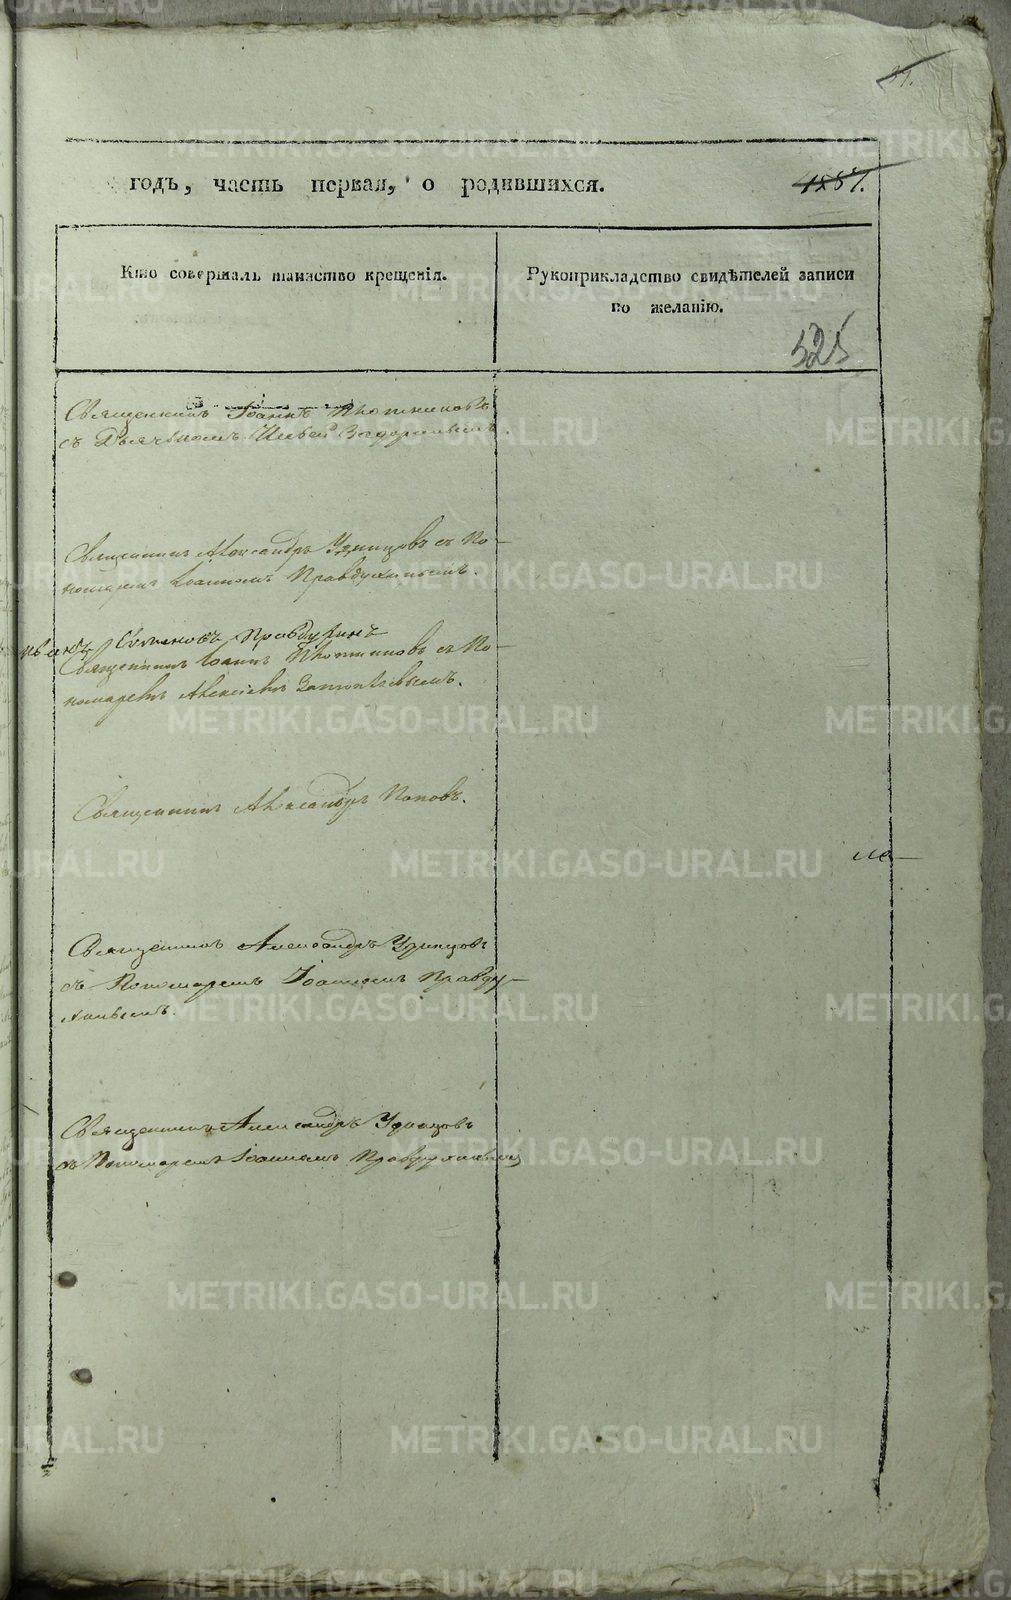 31.
годъ, часть первая, о родившихся.
1857.
Кто совершалъ таинство крещенія.
Рукоприкладство свидѣтелей записи
по желанію.
525
Священникъ Іоаннъ Плотниковъ
съ Дьячкомъ
Священникъ Александръ Удинцовъ съ По-
номаремъ Іоанномъ Правдухинымъ.
Степановъ Правдухинъ
Священникъ Іоаннъ Плотниковъ съ По-
номаремъ Алексіемъ
Священникъ Александръ Поповъ.
Священникъ Александръ Удинцовъ
съ Пономаремъ Іоанномъ Правду-
хинымъ.
Священникъ Александръ Удинцовъ
съ Пономаремъ Іоанномъ Правдухинымъ
METRIKI.GASO-URAL.RU